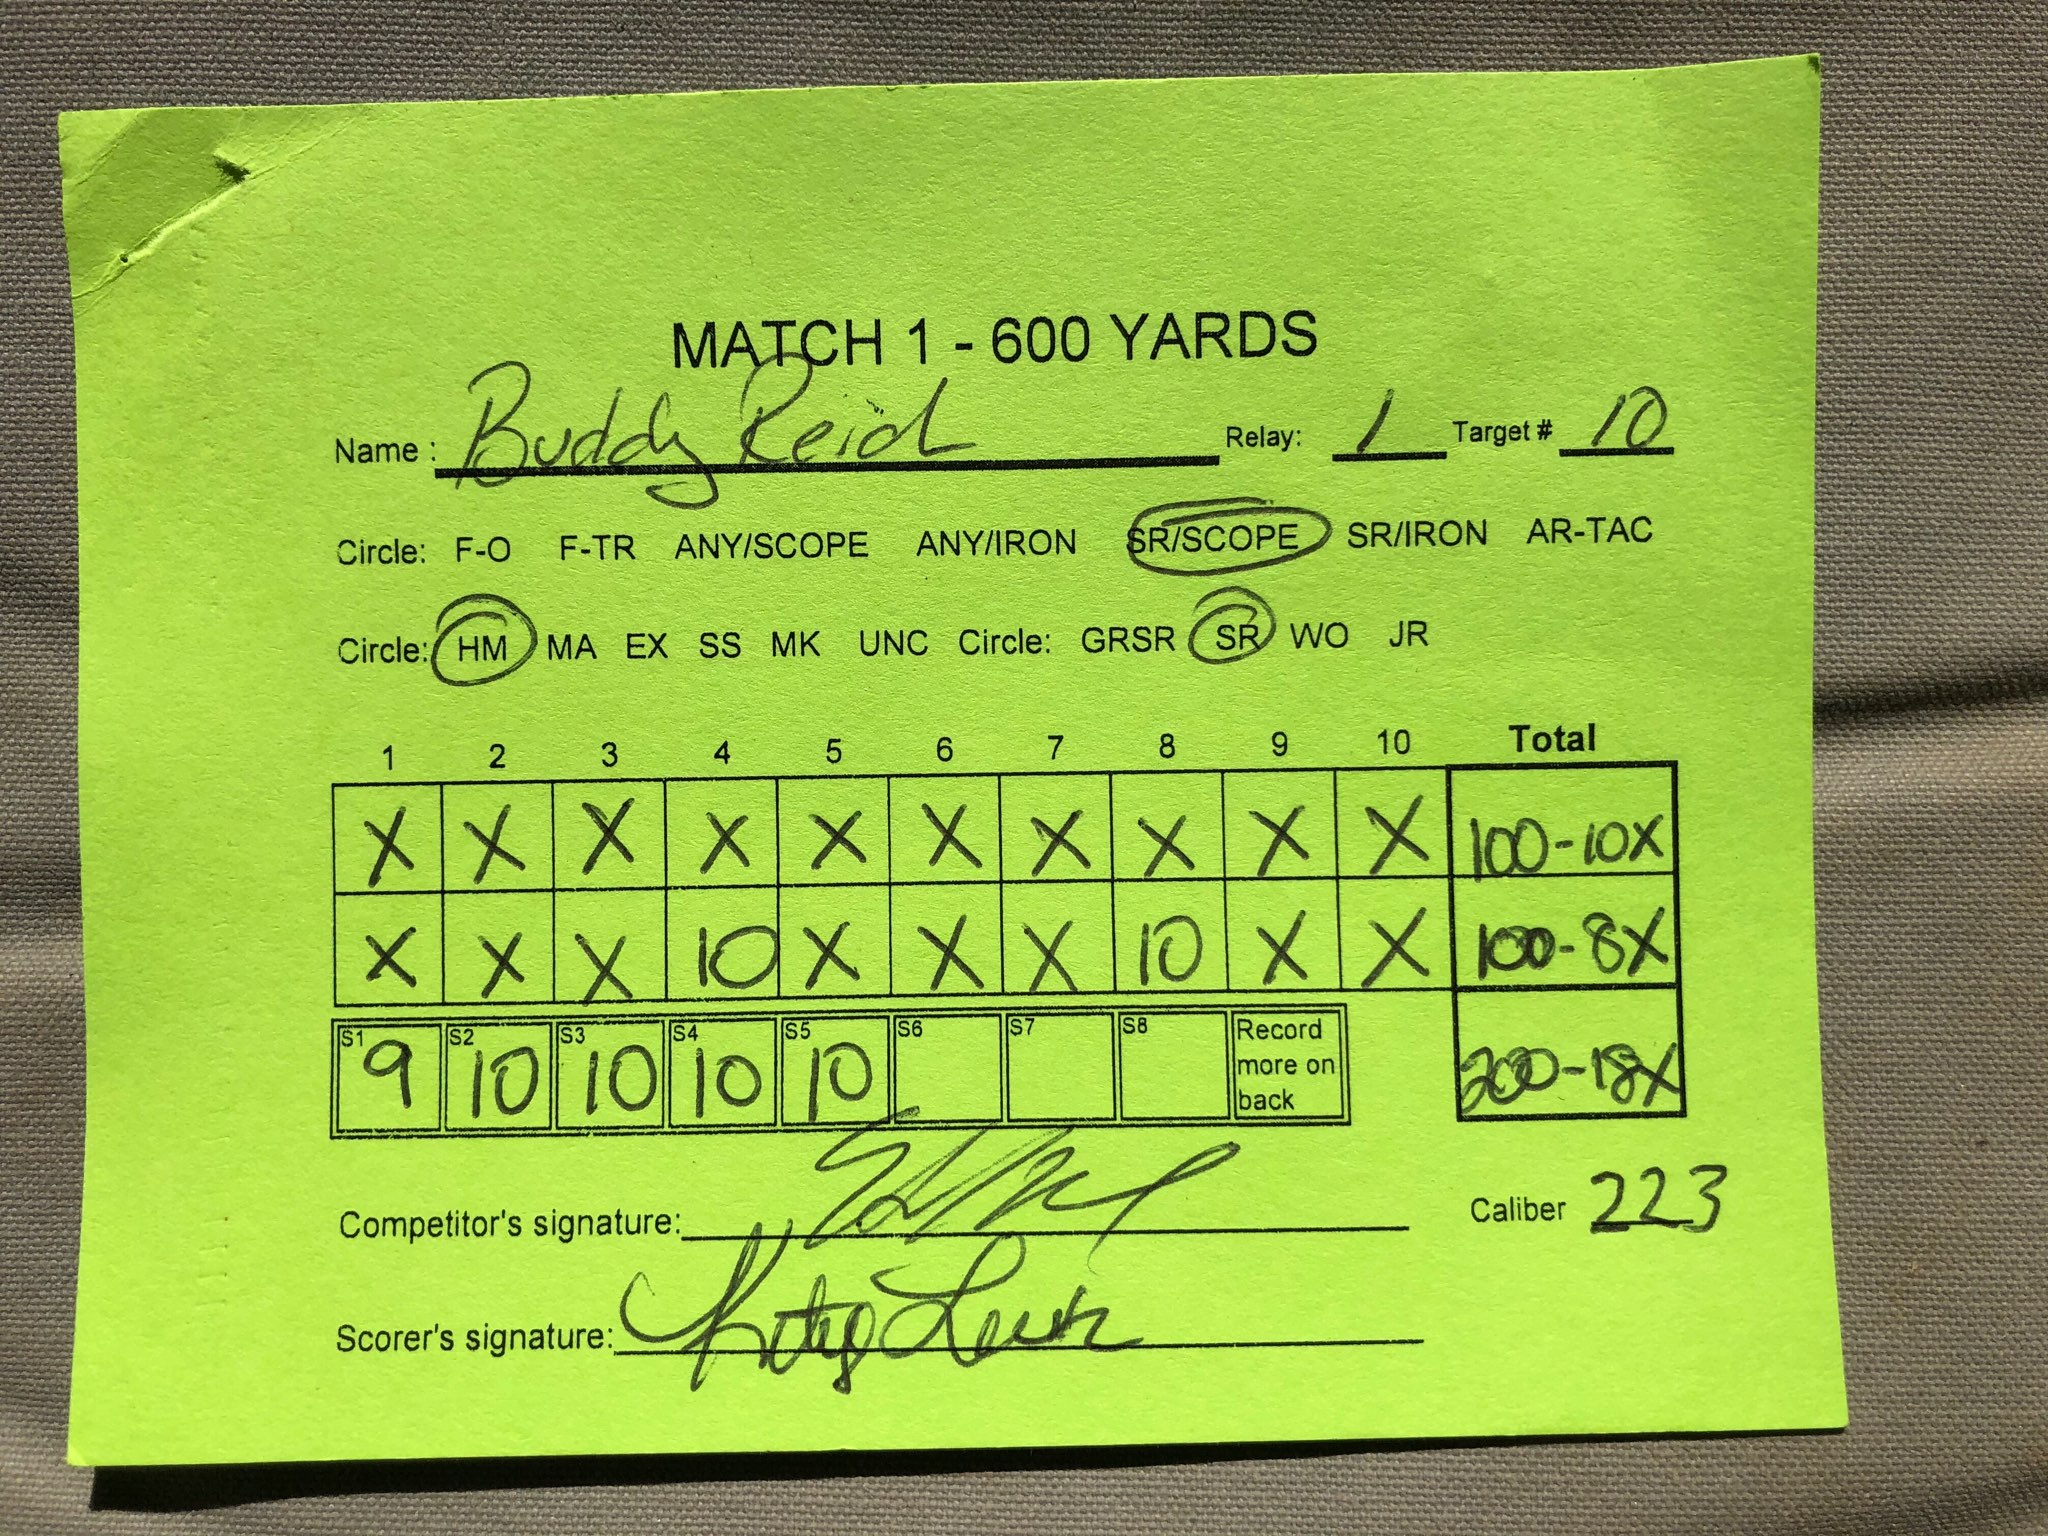 MATCH 1 - 600 YARDS
Name : Buddy Reich Relay: 1 Target # 10
Circle: F-O F-TR ANY/SCOPE ANY/IRON SR/SCOPE SR/IRON AR-TAC
Circle: HM MA EX SS MK UNC Circle: GRSR SR WO JR
1 2 3 4 5 6 7 8 9 10 Total
X X X X X X X X X X 100-10X
X X X 10 X X X 10 X X 100-8X
S1 9 S2 10 S3 10 S4 10 S5 10 S6 S7 S8 Record more on back 200-18X
Competitor's signature: Caliber 223
Scorer's signature: